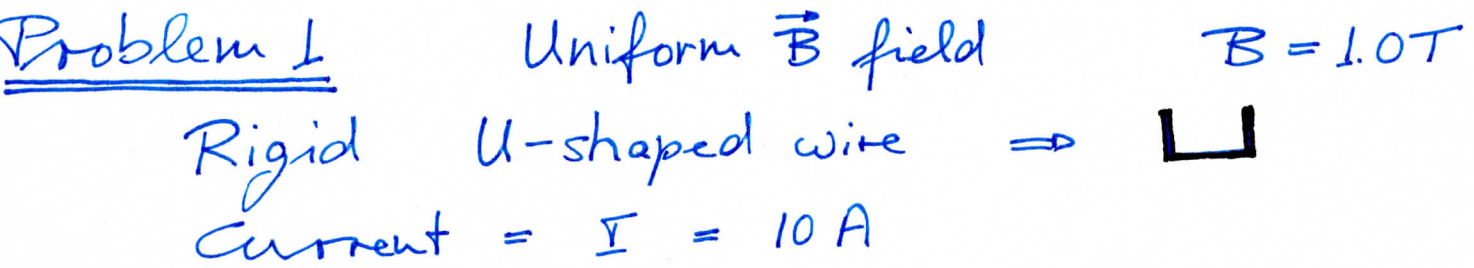 Problem 1 Uniform B⃗ field B = 1.0T
Rigid U-shaped wire ⇒
Current = I = 10 A